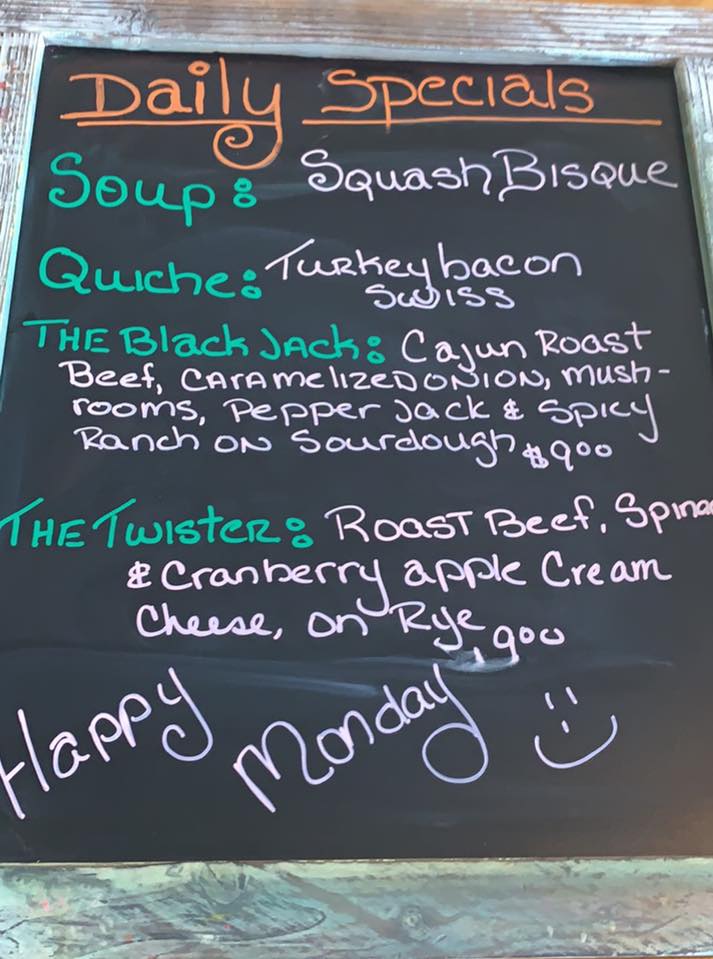 Daily Specials
Soup: Squash Bisque
Quiche: Turkey bacon
Swiss
THE Black Jack: Cajun Roast
Beef, Caramelized onion, mush-
rooms, Pepper Jack & Spicy
Ranch on Sourdough $9.00
THE Twister: Roast Beef, Spina
& Cranberry apple Cream
Cheese, on Rye, 9.00
Happy Monday :)